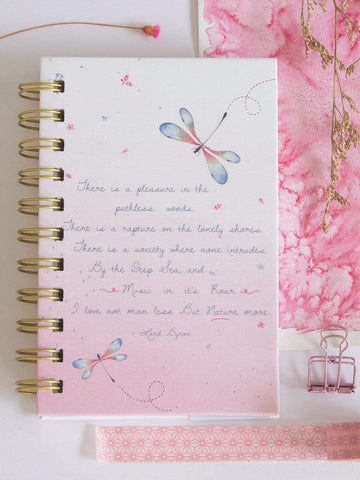 There is a pleasure in the
pathless woods.
There is a rapture on the lonely shores.
There is a society where none intrudes.
By the Deep Sea, and
Music in it's Roar.
I love not man less But Nature more.
- Lord Byron